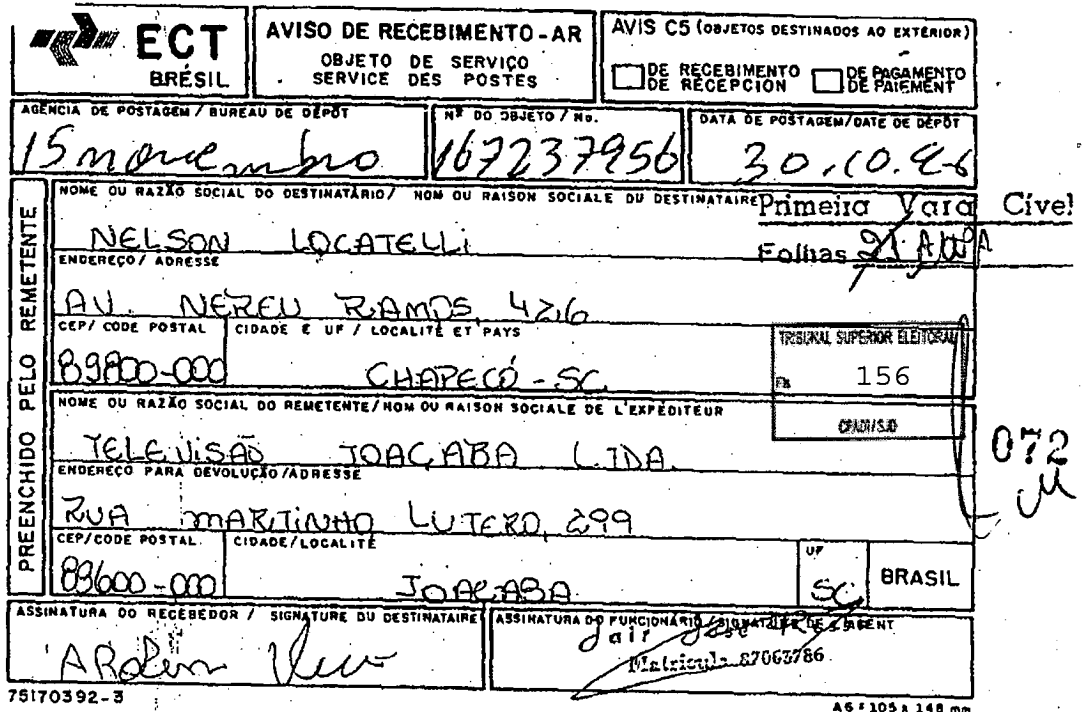 ECT
BRÉSIL
AVISO DE RECEBIMENTO-AR
OBJETO DE SERVIÇO
SERVICE DES POSTES
AVIS C5 (OBJETOS DESTINADOS AO EXTERIOR)
DE RECEBIMENTO
DE RÉCEPCION
DE PAGAMENTO
DE PAIEMENT
AGÊNCIA DE POSTAGEM / BUREAU DE DÉPÔT
15 novembro
Nº DO OBJETO / No.
167237956
DATA DE POSTAGEM/DATE DE DÉPÔT
30.10.96
PREENCHIDO PELO REMETENTE
NOME OU RAZÃO SOCIAL DO DESTINATÁRIO / NOM OU RAISON SOCIALE DU DESTINATAIRE
Primeira Vara Cível
NELSON LOCATELLI
Folhas 21
ENDEREÇO / ADRESSE
AV. NEREU RAMOS, 426
CEP/ CODE POSTAL
CIDADE E UF / LOCALITÉ ET PAYS
89800-000
CHAPECÓ - SC
TRIBUNAL SUPERIOR ELEITORAL
156
CPADI/SJD
NOME OU RAZÃO SOCIAL DO REMETENTE/NOM OU RAISON SOCIALE DE L'EXPÉDITEUR
TELEVISÃO JOAÇABA LTDA.
072
ENDEREÇO PARA DEVOLUÇÃO/ADRESSE
RUA MARTINHO LUTERO, 299
CEP/CODE POSTAL
CIDADE/LOCALITÉ
UF
89600-000
JOAÇABA
SC
BRASIL
ASSINATURA DO RECEBEDOR / SIGNATURE DU DESTINATAIRE
ASSINATURA DO FUNCIONÁRIO/SIGNATURE DE L'AGENT
Jair José
Matrícula 87063786
75170392-3
A6 = 105 x 148 mm